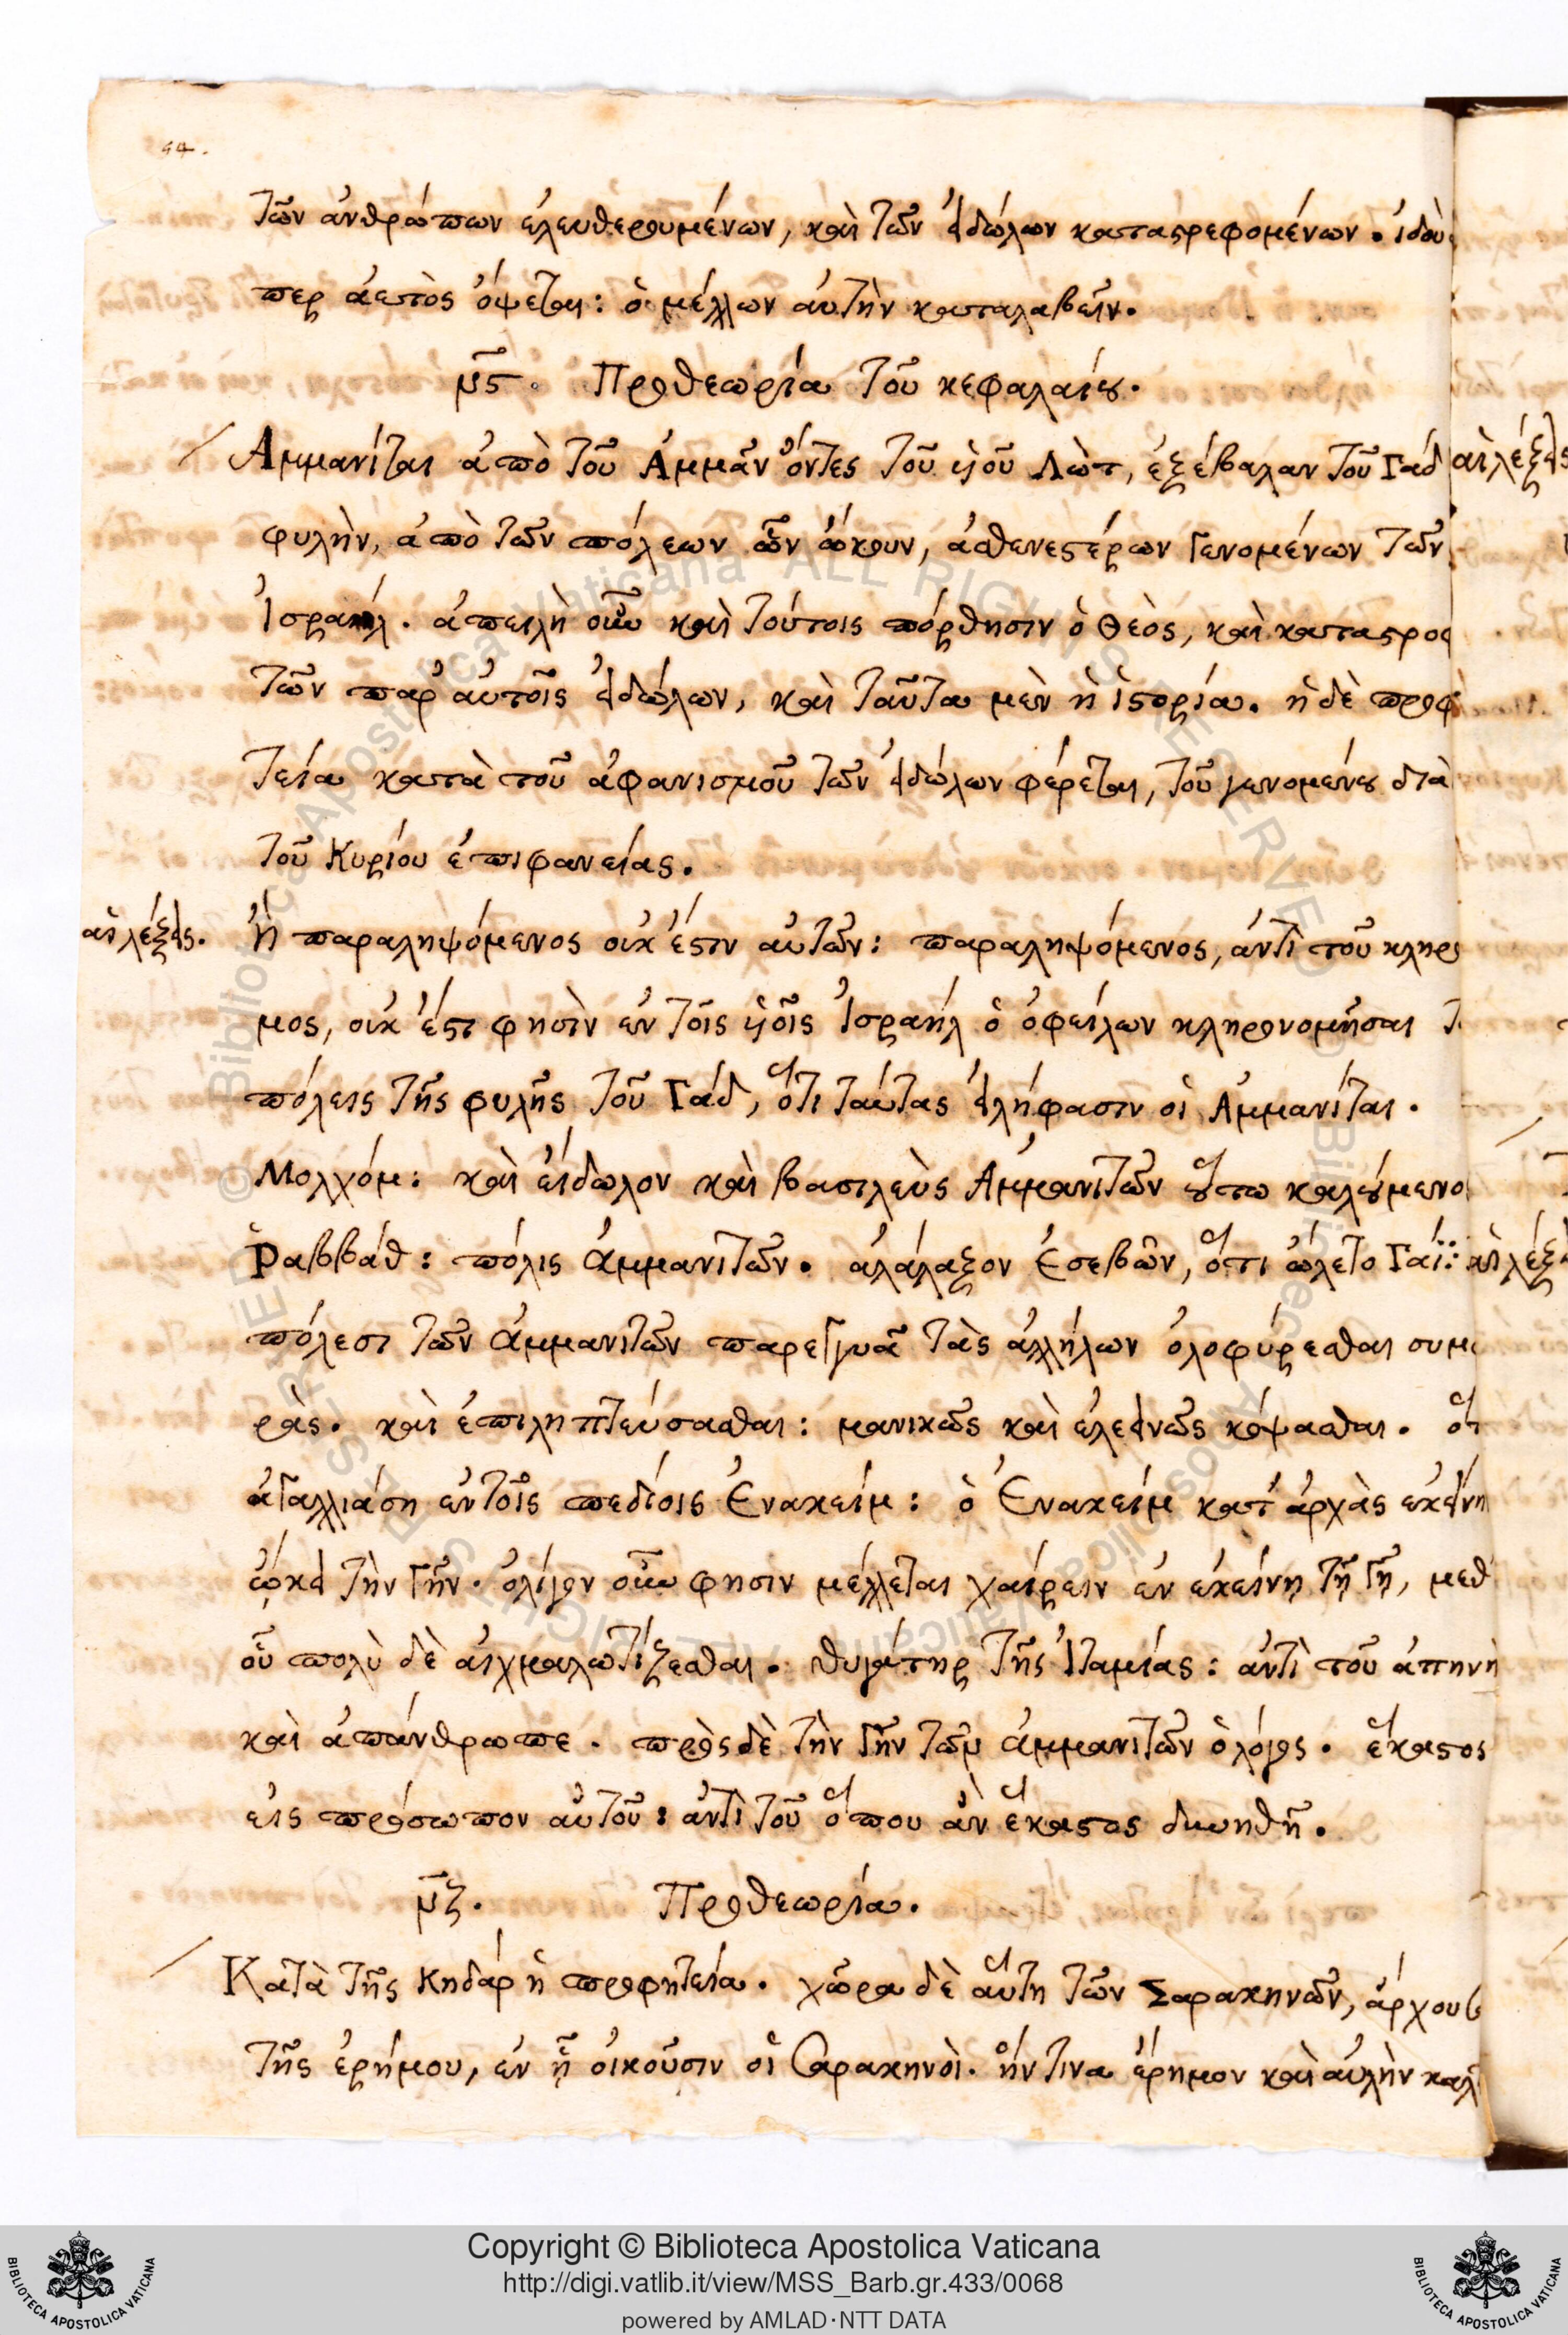 54.
τῶν ἀνθρώπων ἐλευθερουμένων, καὶ τῶν εἰδώλων καταστρεφομένων. ἰδοὺ
περ ἀετὸς ὄψεται: ὁ μέλλων αὐτὴν καταλαβεῖν.
μ̅ς. Προθεωρία τοῦ κεφαλαίου.
Ἀμμανίται ἀπὸ τοῦ Ἀμμὰν ὄντες τοῦ υἱοῦ Λὼτ, ἐξέβαλαν τοῦ Γάδ
αἱ λέξεις
φυλὴν, ἀπὸ τῶν πόλεων ὧν ᾤκουν, ἀσθενεστέρων γενομένων τῶν
Ἰσραήλ. ἀπειλὴ οὖν καὶ τούτοις πόρθησιν ὁ Θεὸς, καὶ καταστρο
τῶν παρ' αὐτοῖς εἰδώλων, καὶ ταῦτα μὲν ἡ ἱστορία. ἡ δὲ προφ
τεία κατὰ τοῦ ἀφανισμοῦ τῶν εἰδώλων φέρεται, τοῦ γενομένου διὰ
τοῦ Κυρίου ἐπιφανείας.
αἱ λέξεις. Ἢ παραληψόμενος οὐκ ἔστιν αὐτῶν: παραληψόμενος, ἀντὶ τοῦ κληρο
μος, οὐκ ἔστι φησὶν ἐν τοῖς υἱοῖς Ἰσραὴλ ὁ ὀφείλων κληρονομῆσαι τ
πόλεις τῆς φυλῆς τοῦ Γάδ, ὅτι ταύτας εἰλήφασιν οἱ Ἀμμανίται.
Μολχόμ: καὶ εἴδωλον καὶ βασιλεὺς Ἀμμανιτῶν οὕτω καλούμενο
Ῥαββάθ: πόλις Ἀμμανιτῶν. ἀλάλαξον Ἐσεβὼν, ὅτι ὤλετο Γαΐ:
αἱ λέξ
πόλεσι τῶν Ἀμμανιτῶν παρεγγυᾷ τὰς ἀλλήλων ὀλοφύρεσθαι συμ
ρὰς. καὶ ἐπιληπτεύσασθαι: μανικῶς καὶ ἐλεεινῶς κόψασθαι. ὅτ
ἀγαλλιάσῃ ἐν τοῖς πεδίοις Ἐνακείμ: ὁ Ἐνακείμ κατ' ἀρχὰς ἐκείνη
ᾤκει τὴν γῆν. ὀλίγον οὖν φησιν μέλλεται χαίρειν ἐν ἐκείνῃ τῇ γῇ, μεθ'
οὗ πολὺ δὲ αἰχμαλωτίζεσθαι. θυγάτηρ τῆς Ἰταμίας: ἀντὶ τοῦ ἀπηνὴ
καὶ ἀπάνθρωπε. πρὸς δὲ τὴν γῆν τῶν Ἀμμανιτῶν ὁ λόγος. ἕκαστος
εἰς πρόσωπον αὐτοῦ: ἀντὶ τοῦ ὅπου ἂν ἕκαστος δυνηθῇ.
μ̅ζ. Προθεωρία.
Κατὰ τῆς Κηδάρ ἡ προφητεία. χώρα δὲ αὕτη τῶν Σαρακηνῶν, ἄρχου
τῆς ἐρήμου, ἐν ᾗ οἰκοῦσιν οἱ Σαρακηνοὶ. ἥν τινα ἔρημον καὶ αὐλὴν καλ
Copyright © Biblioteca Apostolica Vaticana
http://digi.vatlib.it/view/MSS_Barb.gr.433/0068
powered by AMLAD·NTT DATA